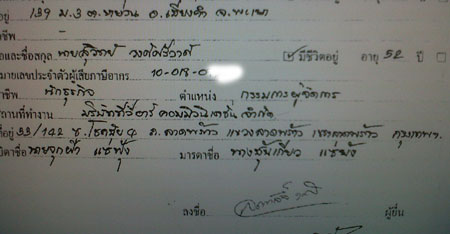 อยู่ 139 ม.3 ต.หย่วน อ.เชียงคำ จ.พะเยา
ชีพ
และชื่อสกุล นาย วงศ์ไพรวาศ มีชีวิตอยู่ อายุ 52 ปี
หมายเลขประจำตัวผู้เสียภาษีอากร 10-019-0
ชีพ นักธุรกิจ ตำแหน่ง กรรมการผู้จัดการ
สถานที่ทำงาน บริษัททีวีอาร์ คอมมิวนิเคชั่น จำกัด
ที่อยู่ 33/142 ซ.โชคชัย 4 ถ.ลาดพร้าว แขวงลาดพร้าว เขตลาดพร้าว กรุงเทพฯ
บิดาชื่อ นาย แซ่ฟุ้ง มารดาชื่อ นางสุ้นเกียว แซ่ฟุ้ง
ลงชื่อ ผู้ยื่น